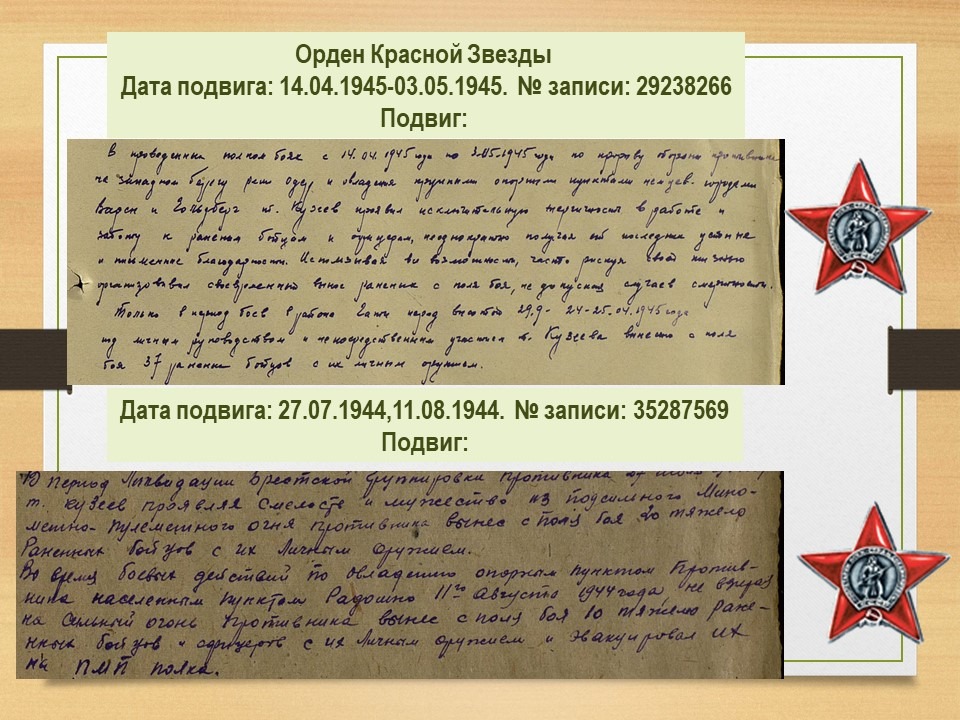 Орден Красной Звезды
Дата подвига: 14.04.1945-03.05.1945. № записи: 29238266
Подвиг:
В проведенных полком боях с 14.04.1945 года по 3.05.1945 года по прорыву обороны противника
на западном берегу реки Одер и овладения крупными опорными пунктами немцев - городами
и т. Кузеев проявил исключительную энергичность в работе и
заботу к раненым бойцам и офицерам, неоднократно получая от последних устные
и письменные благодарности. Используя все возможности, часто рискуя своей жизнью
организовывал своевременный вынос раненых с поля боя, не допуская случаев смертности.
Только в период боев в районе перед высотой 29,9 - 24-25.04.1945 года
под личным руководством и непосредственным участием т. Кузеева вынесено с поля
боя 37 раненых бойцов с их личным оружием.
Дата подвига: 27.07.1944,11.08.1944. № записи: 35287569
Подвиг:
В период Ликвидации Брестской группировки противника 27
т. Кузеев проявляя смелость и мужество из под сильного Мино-
метно-пулеметного огня противника вынес с поля боя 20 тяжело
Раненных бойцов с их личным оружием.
Во время боевых действий по овладению опорным пунктом Против-
ника населенным пунктом Радошно 11го Августа 1944 года не взирая
на сильный огонь противника вынес с поля боя 10 тяжело ране-
нных бойцов и офицеров с их личным оружием и эвакуировал их
на ПМП полка.